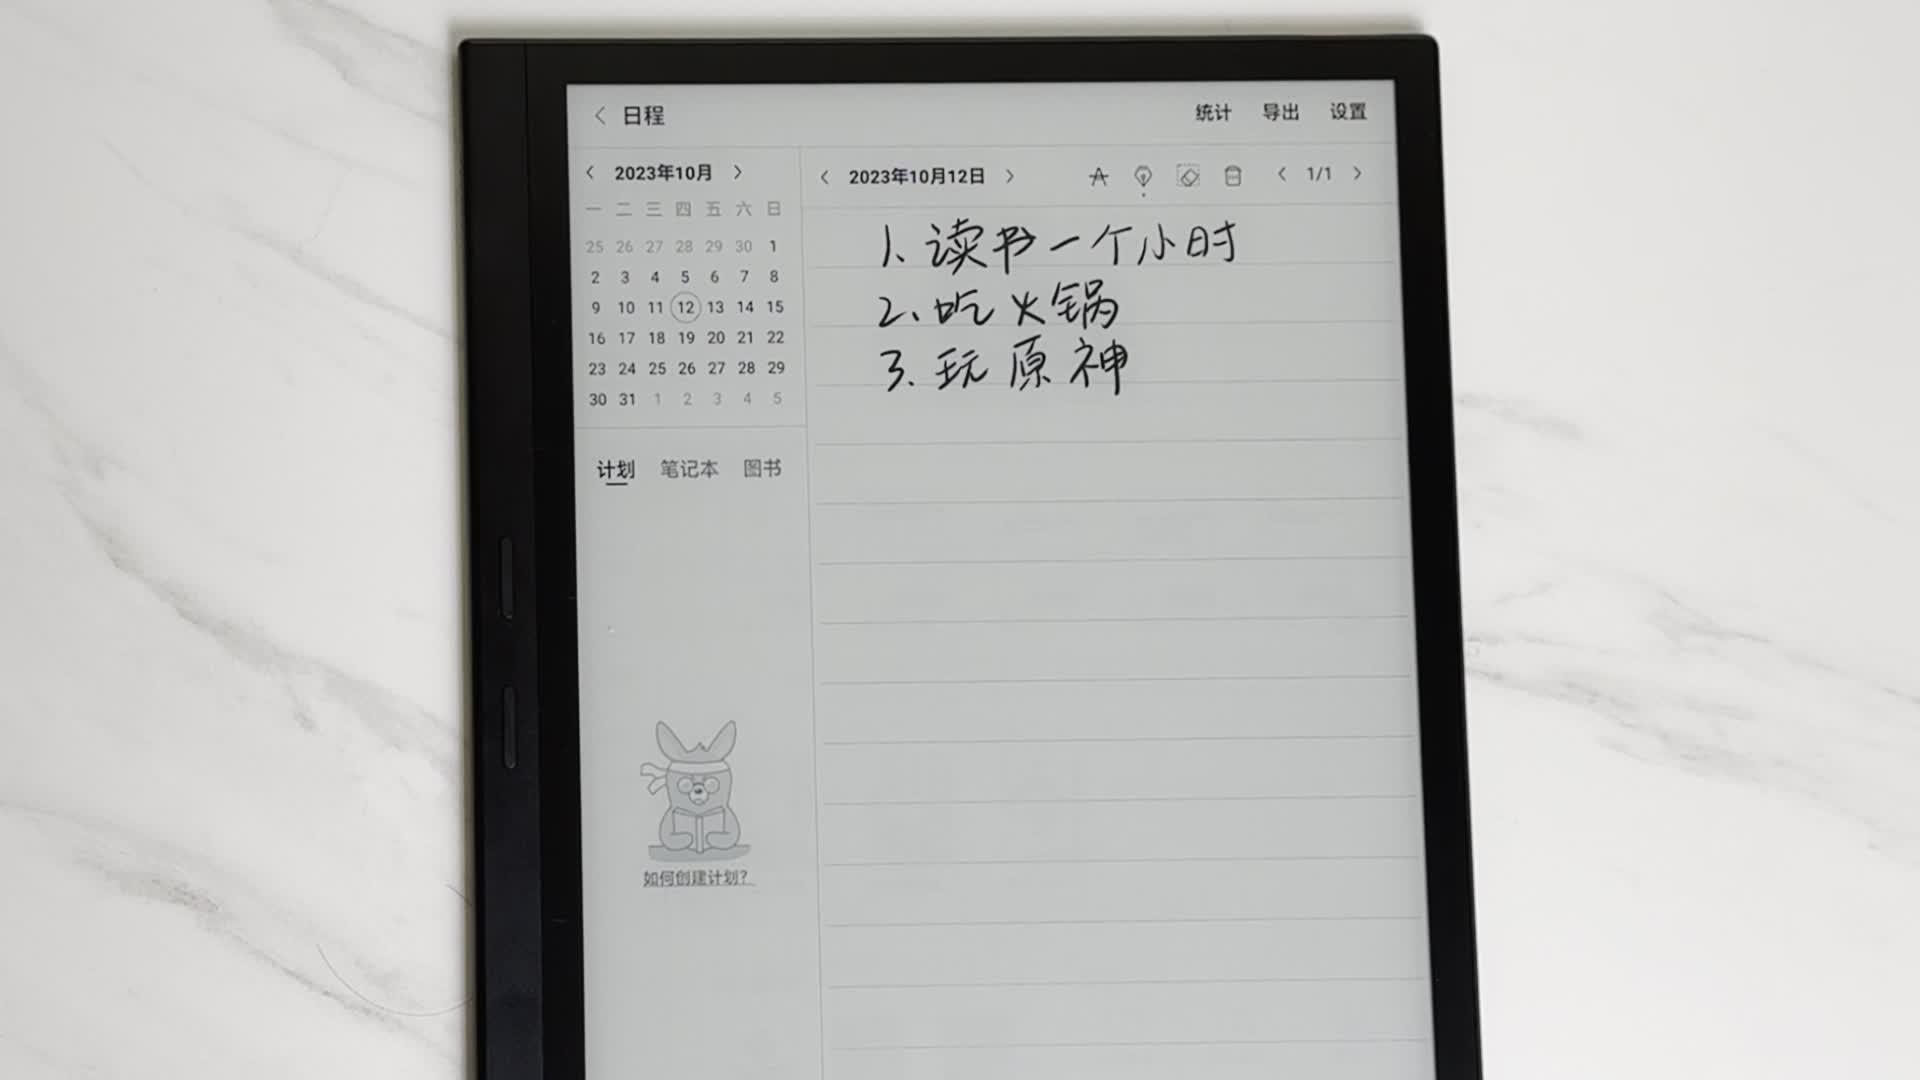 日程
统计 导出 设置
2023年10月
一 二 三 四 五 六 日
25 26 27 28 29 30 1
2 3 4 5 6 7 8
9 10 11 12 13 14 15
16 17 18 19 20 21 22
23 24 25 26 27 28 29
30 31 1 2 3 4 5
计划 笔记本 图书
如何创建计划?
2023年10月12日
1/1
1、读书一个小时
2、吃火锅
3. 玩原神